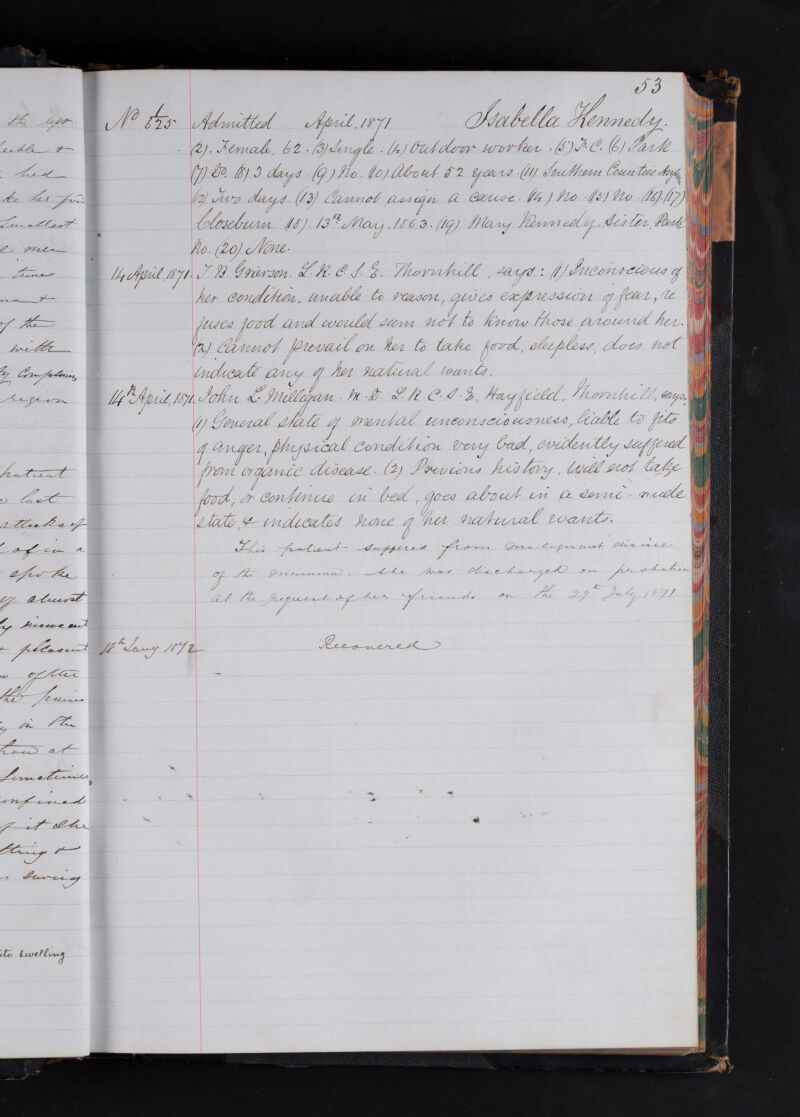 the left
&
bed
to her
smallest
time
of the
with
complains
region
patient
last
attacks of
of in a
spoke
almost
innocent
pleasant
of the
the
in the
than at
Sometimes
confined
of it she
&
swelling
53
No 1/525 Admitted April, 1871 Isabella Kennedy.
(2). Female, 62. (3) Single. (4) Outdoor worker. (5) F. C. (6) Park
(7) Do. (8) 3 days. (9) No. (10) About 52 years. (11) Southern Counties Asylum
(12) Two days. (13) Cannot assign a cause. (14) No. (15) No. (16). (17)
Closeburn. (18). 13th May, 1863. (19) Mary Kennedy, Sister, Park
No. (20) None.
14 April, 1871. J. B. Grierson. L. R. C. S. E. Thornhill, says: (1) Inconscious of
her condition, unable to reason, gives expression of fear, re
fuses food and would seem not to know those around her.
(2) Cannot prevail on her to take food, sleepless, does not
indicate any of her natural wants.
14th April, 1871. John L. Milligan. M. D. L. R. C. S. E. Hayfield, Thornhill, says:
(1) General state of mental unconsciousness, liable to fits
of anger, physical condition very bad, evidently suffered
from organic disease. (2) Previous history, will not take
food, or continue in bed, goes about in a semi-nude
state, & indicates none of her natural wants.
This patient suffered from malignant disease
of the mamma. She was discharged on probation
at the request of her friends on the 29th July 1871
18th Jany 1872 Recovered